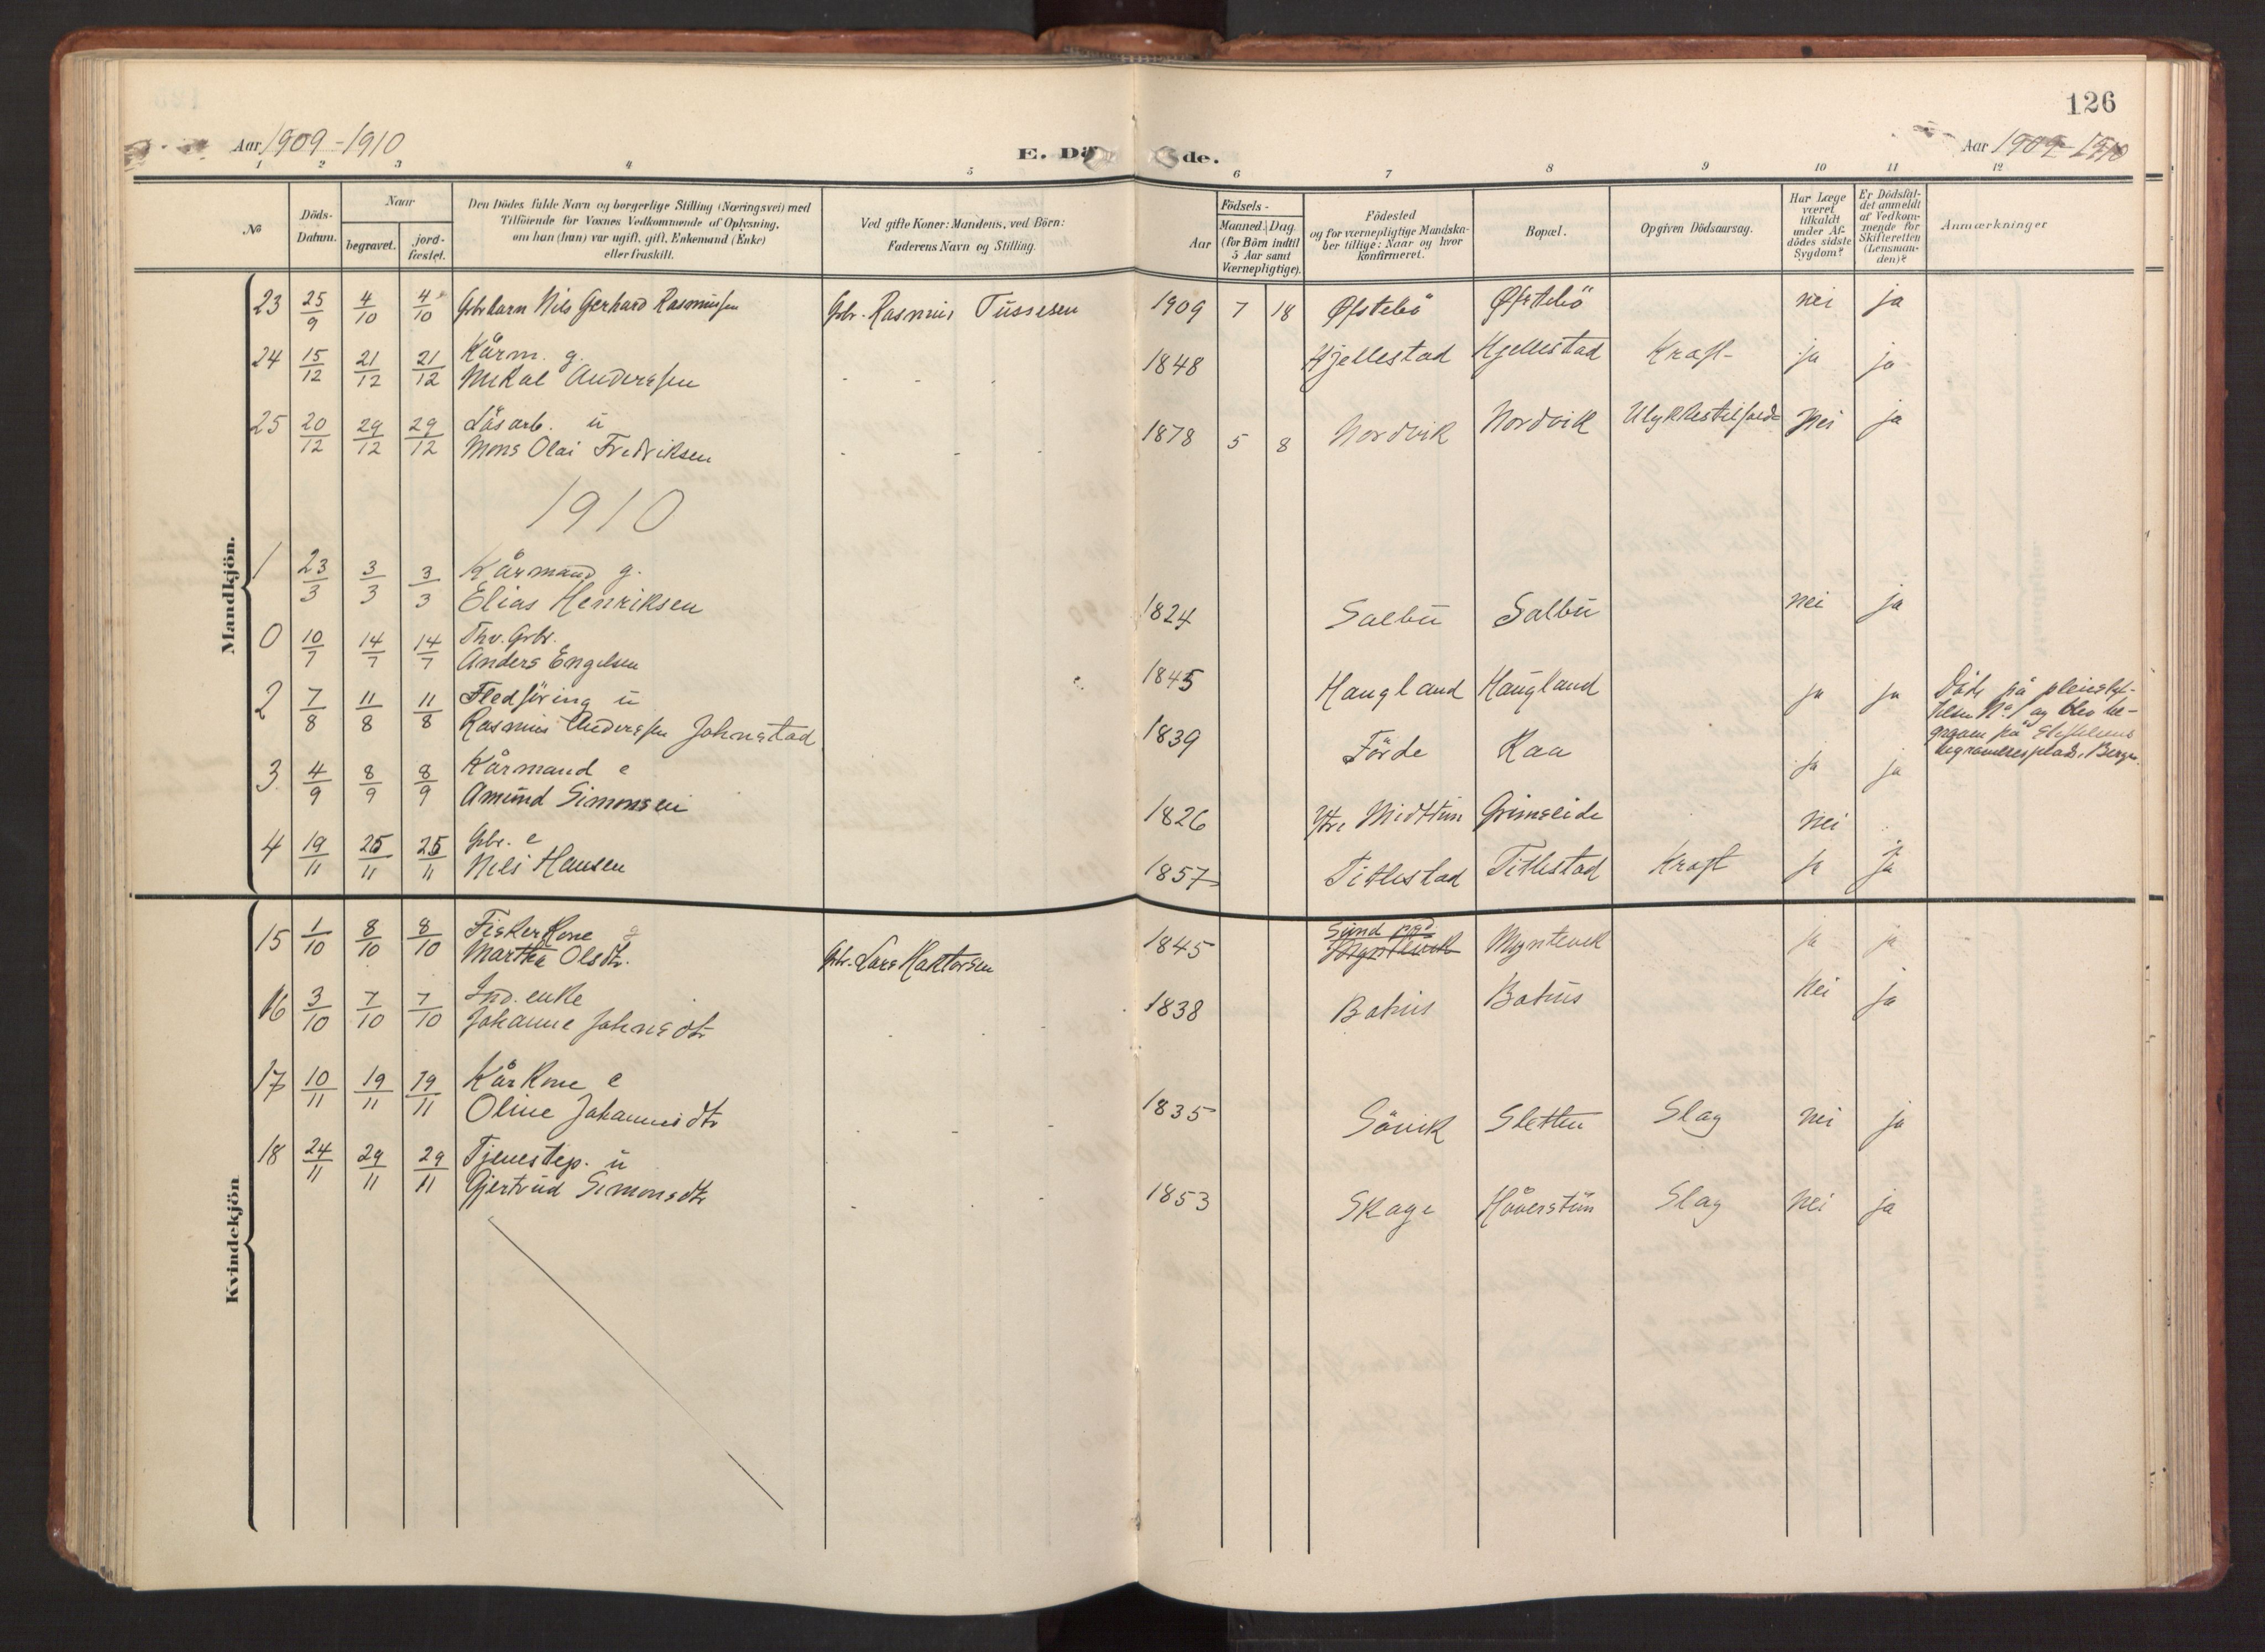 126
Aar 1909-1910
E. Dö de.
Aar 1909-1910
1 2 3 4 5 6 7 8 9 10 11 12
No
Döds-Datum.
Naar
begravet.
jord-fæstet.
Den Dödes fulde Navn og borgerlige Stilling (Næringsvei) med
Tilföiende for Voxnes Vedkommende af Oplysning,
om han (hun) var ugift, gift, Enkemand (Enke)
eller fraskilt.
Ved gifte Koner: Mandens, ved Börn:
Faderens Navn og Stilling.
Födsels-
Aar
Maaned. Dag
(for Börn indtil
5 Aar samt
Værnepligtige).
Födested
og for værnepligtige Mandska-
ber tillige: Naar og hvor
konfirmeret.
Bopæl.
Opgiven Dödsaarsag.
Har Læge
været
tilkaldt
under Af-
dödes sidste
Sygdom?
Er Dödsfal-
det anmeldt
af Vedkom-
mende for
Skifteretten
(Lensman-
den)?
Anmærkninger
Mandkjön.
23 25/9 4/10 4/10 Gbr barn Nils Gerhard Rasmussen Gbr. Rasmus Tussesen 1909 7 18 Øfstebö Øfstebö nei ja
24 15/12 21/12 21/12 Kårm. g.
Mikal Anderssen - - - 1848 Hjellestad Hjellestad Kræft- ja ja
25 20/12 29/12 29/12 Løsarb. u
Mons Olai Fredriksen - - - 1878 5 8 Nordvik Nordvik Ulykkestilfælde nei ja
1910
1 23/3 3/3 3/3 Kårmand g.
Elias Henriksen 1824 Salbu Salbu nei ja
0 10/7 14/7 14/7 Thv. Grbr.
Anders Engelsen 1845 Haugland Haugland ja ja
2 7/8 11/8 11/8 Fledföring u
Rasmus Anderssen Johnstad 1839 Förde Raa ja ja
Döde på pleiestif-
telsen No 1 og blev be-
graven på
begravelsesplads, Bergen.
3 4/9 8/9 8/9 Kårmand e
Amund Simonsen 1826 Ytre Midttun Grimseide nei
4 19/11 25/11 25/11 Gbr. e
Nils Hansen 1857 Titlestad Titlestad Kræft ja ja
Kvindekjön
15 1/10 8/10 8/10 Fiskerkone g
Martha Olsdtr. Gbr. Lars Haktorsen 1845 Sund pgd Myntevik Myntevik ja ja
16 3/10 7/10 7/10 Ind. enke
Johanne Johnsdtr - - 1838 Bahus Bahus Nei ja
17 10/11 19/11 19/11 Kårkone e
Oline Johannesdtr - - - 1835 Sövik Sletten Slag nei ja
18 24/11 29/11 29/11 Tjenestep. u
Gjertrud Simonsdtr - - - 1853 Skage Håverstun Slag Nei ja